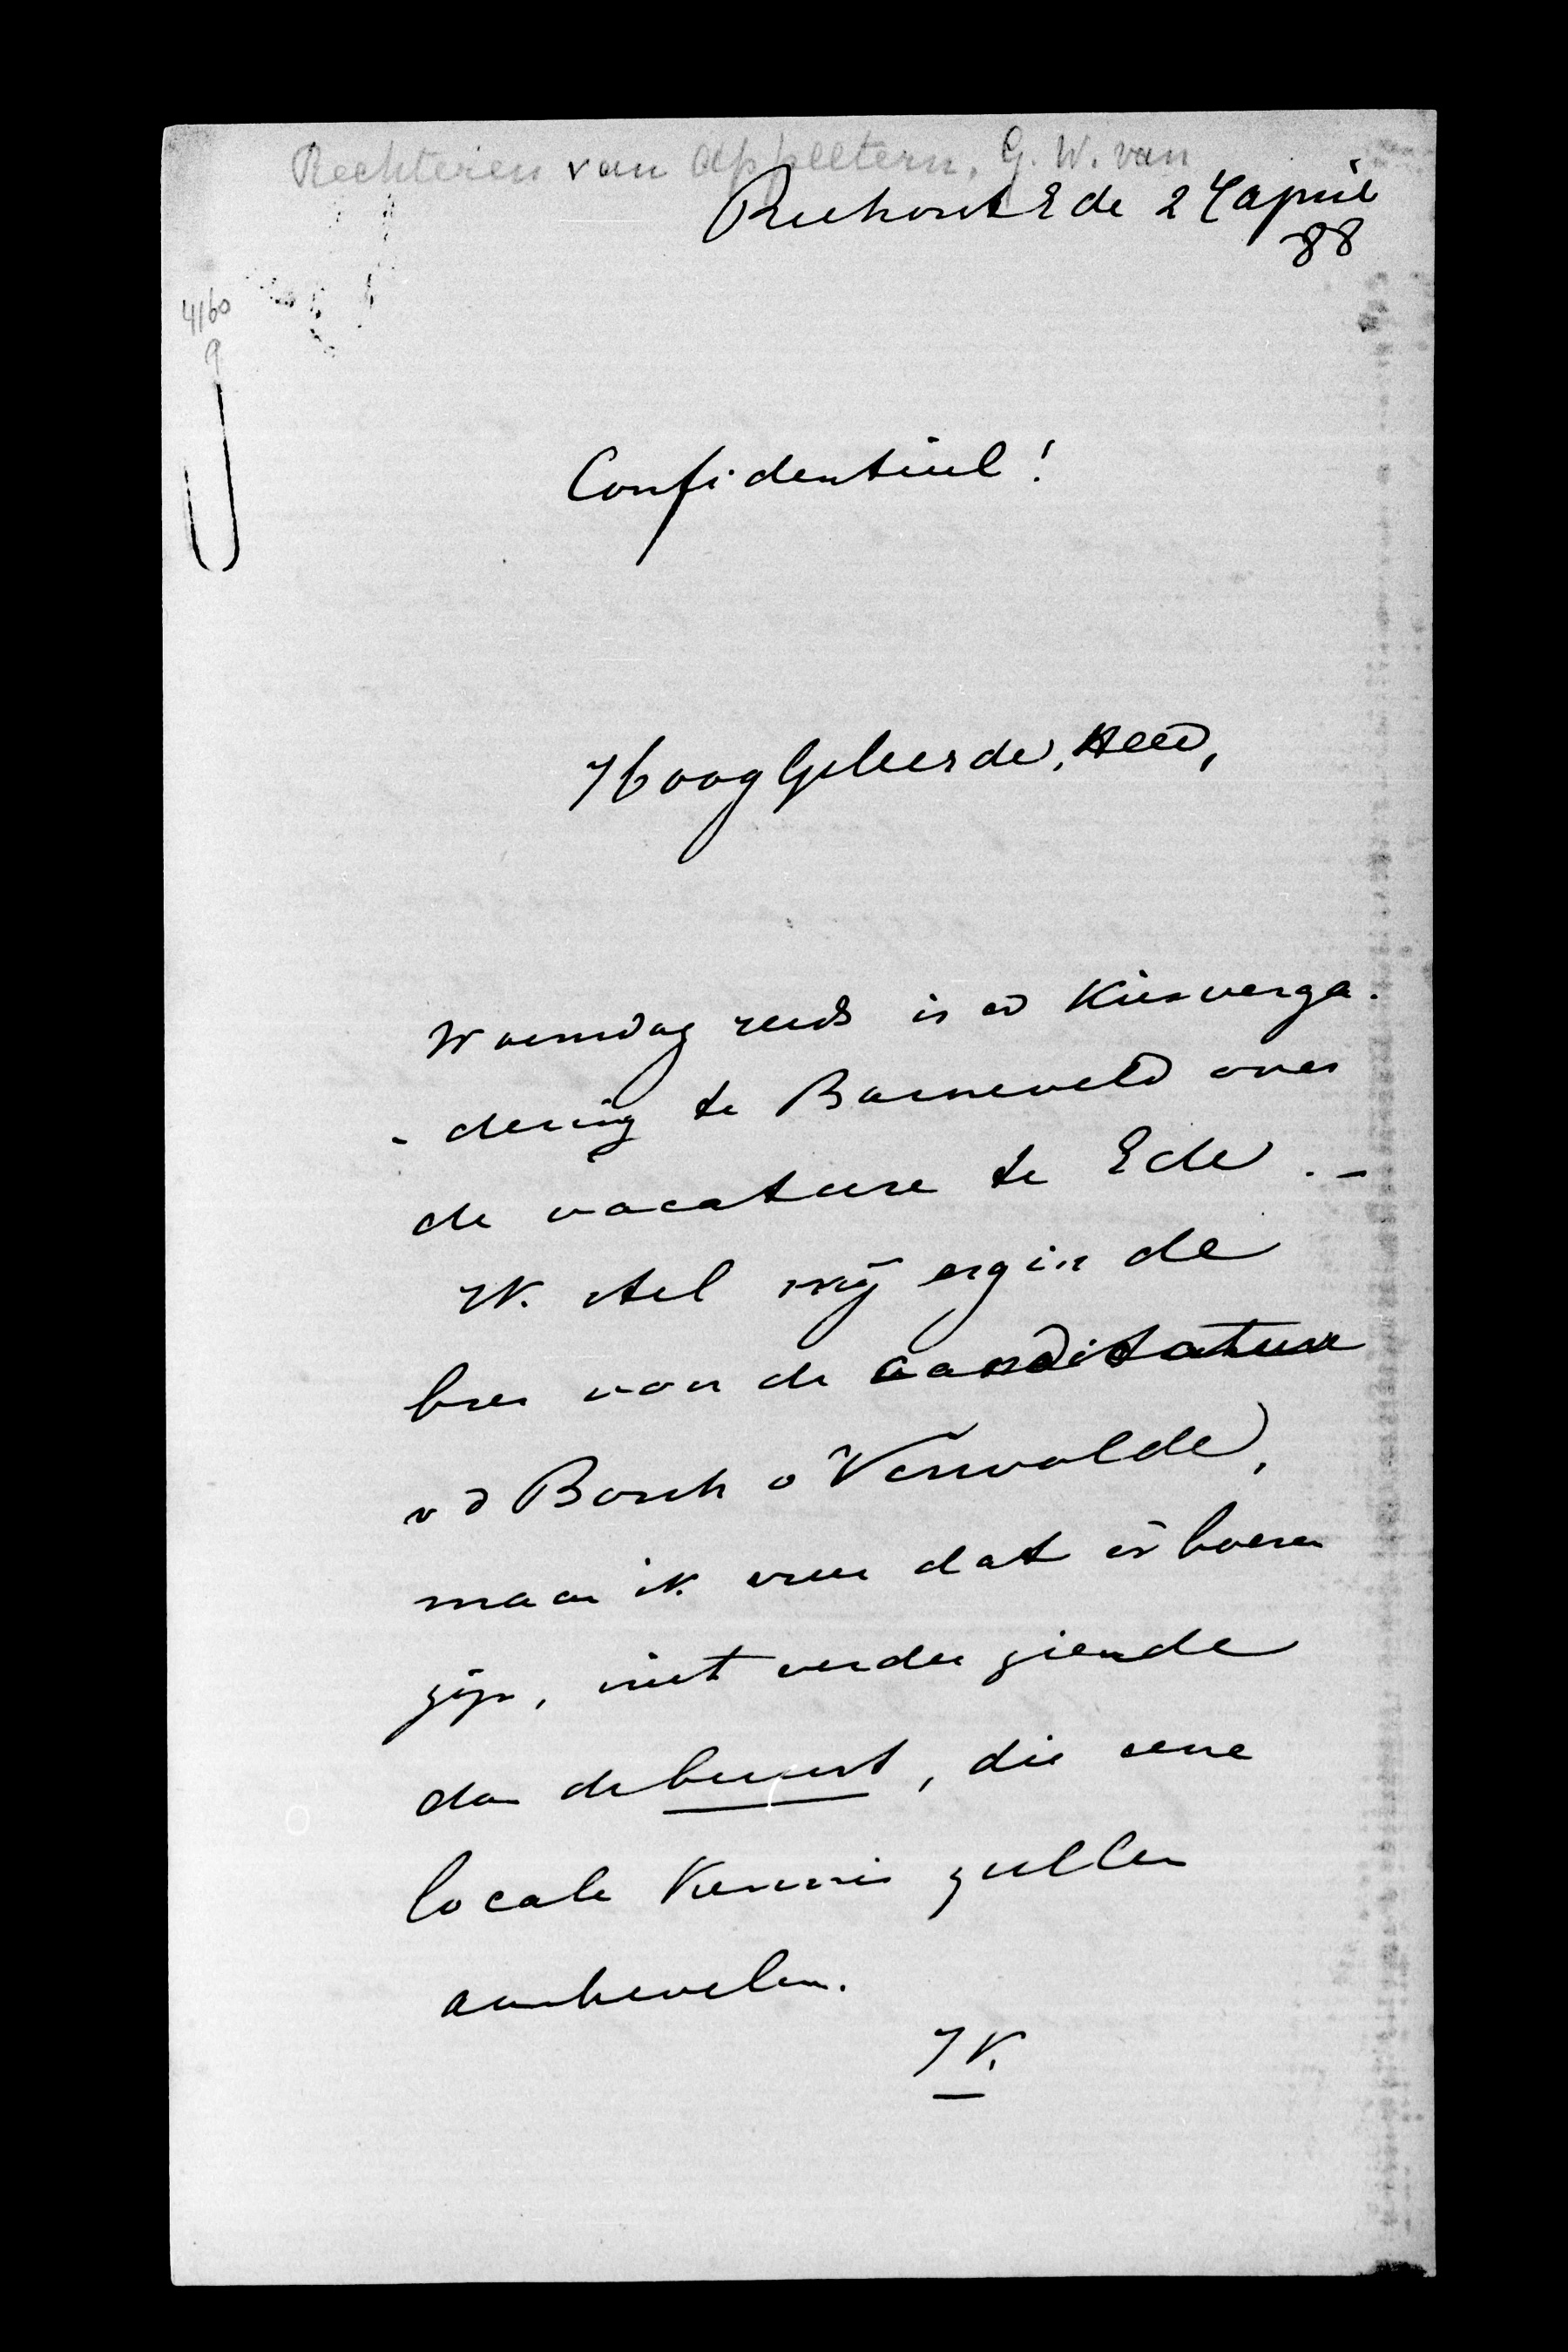 Rechteren van Appeltern, G. W. van
Reehorst Ede 24 april
88
4160
9
Confidentieel!
Hoog Geleerde, Heer,
Woensdag reeds is er Kiesverga-
- dering te Barneveld over
de vacature te Ede. -
Ik stel mij erg in de
bres voor de candidatuur
v d Bosch v Verwolde,
maar ik vrees dat er boeren
zijn, niet verder ziende
dan de buurt, die eene
locale Kennis zullen
aanbevelen.
IK